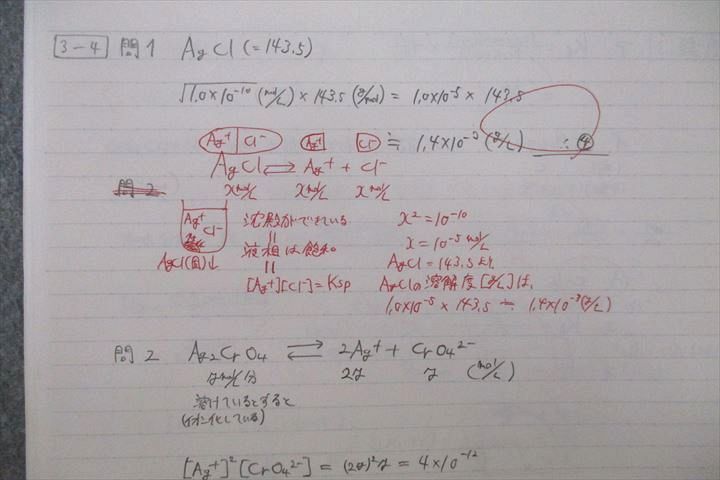 3-4 問1 AgCl (=143.5)
√1.0×10⁻¹⁰ (mol/L) × 143.5 (g/mol) = 1.0×10⁻⁵ × 143.5
Ag⁺ Cl⁻ Ag⁺ Cl⁻ ≒ 1.4×10⁻³ (g/L) ∴ ④
AgCl ⇄ Ag⁺ + Cl⁻
問2 x mol/L x mol/L x mol/L
Ag⁺ Cl⁻ 沈殿ができている x² = 10⁻¹⁰
|| x = 10⁻⁵ mol/L
液相は飽和 AgCl = 143.5より
AgCl(固)↓ || AgClの溶解度[g/L]は、
[Ag⁺][Cl⁻] = Ksp 1.0×10⁻⁵ × 143.5 ≒ 1.4×10⁻³ (g/L)
問2 Ag₂CrO₄ ⇄ 2Ag⁺ + CrO₄²⁻
y mol/ 2y y (mol/L)
溶けているとすると
(イオン化している)
[Ag⁺]²[CrO₄²⁻] = (2y)²y = 4×10⁻¹²